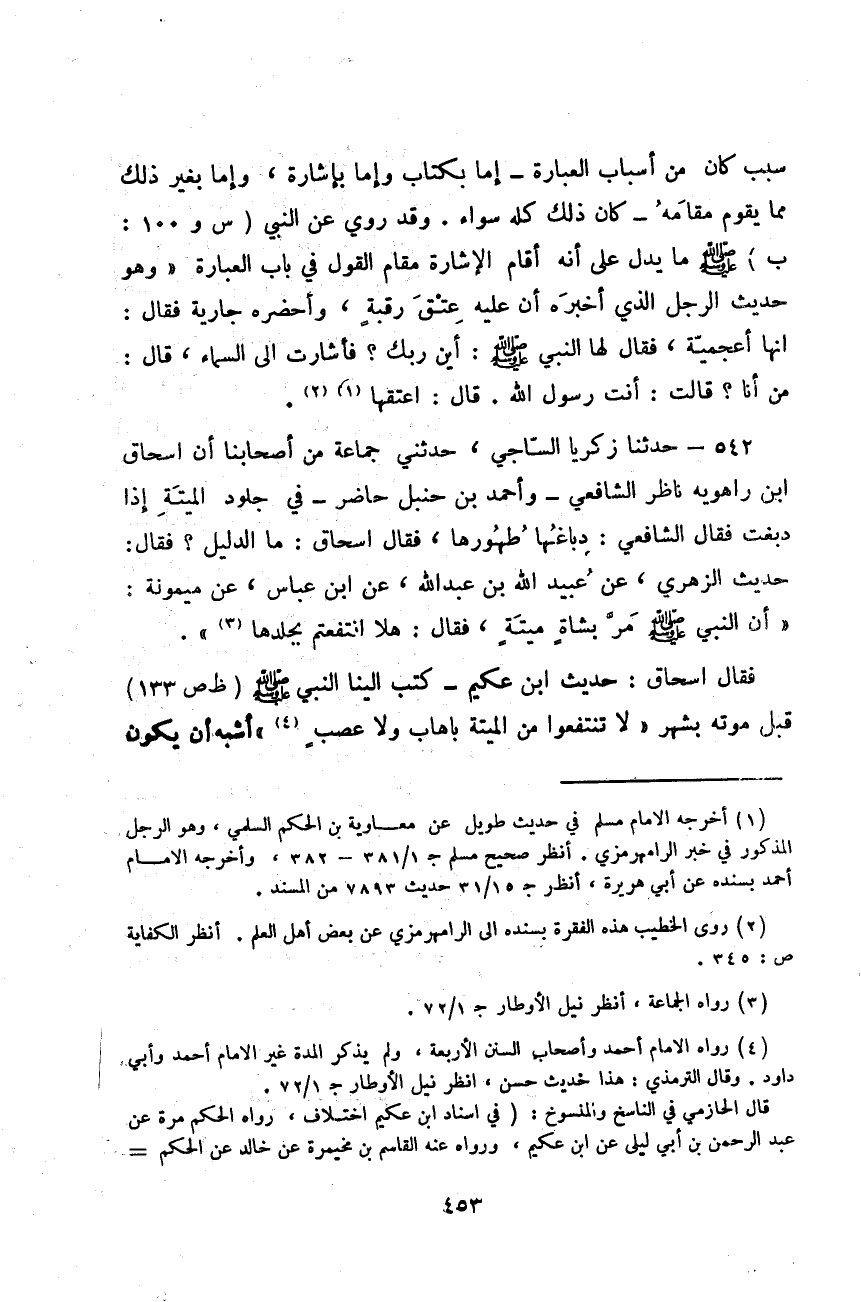 سبب كان من أسباب العبارة – إما بكتاب وإما بإشارة ، وإما بغير ذلك
مما يقوم مقامَهُ – كان ذلك كله سواء . وقد روي عن النبي ( س و ١٠٠ :
ب ) ﷺ ما يدل على أنه أقام الإشارة مقام القول في باب العبارة « وهو
حديث الرجل الذي أخبرَه أن عليه عِتْقَ رقبةٍ ، وأحضره جارية فقال :
انها أعجميّة ، فقال لها النبي ﷺ : أين ربك ؟ فأشارت الى السماء ، قال :
من أنا ؟ قالت : أنت رسول الله . قال : اعتقها (١) (٢) .
٥٤٢ – حدثنا زكريا السّاجي ، حدثني جماعة من أصحابنا أن اسحاق
ابن راهويه ناظر الشافعي – وأحمد بن حنبل حاضر – في جلود الميتَةِ إذا
دبغت فقال الشافعي : دِباغُها طُهُورها ، فقال اسحاق : ما الدليل ؟ فقال:
حديث الزهري ، عن عُبيد الله بن عبدالله ، عن ابن عباس ، عن ميمونة :
« أن النبي ﷺ مَرَّ بشاةٍ ميتَةٍ ، فقال : هلا انتفعتم بجلدها (٣) » .
فقال اسحاق : حديث ابن عكيم – كتب الينا النبي ﷺ ( ظ ص ١٣٣ )
قبل موته بشهر « لا تنتفعوا من الميتة باهاب ولا عصبٍ (٤) » أشبه أن يكون
(١) أخرجه الامام مسلم في حديث طويل عن معـاوية بن الحكم السلمي ، وهو الرجل
المذكور في خبر الرامهرمزي . أنظر صحيح مسلم ج ٣٨١/١ – ٣٨٢ ، وأخرجه الامـام
أحمد بسنده عن أبي هريرة ، أنظر ج ٣١/١٥ حديث ٧٨٩٣ من المسند .
(٢) روى الخطيب هذه الفقرة بسنده الى الرامهرمزي عن بعض أهل العلم . أنظر الكفاية
ص : ٣٤٥ .
(٣) رواه الجماعة ، أنظر نيل الأوطار ج ٧٢/١ .
(٤) رواه الامام أحمد وأصحاب السنن الأربعة ، ولم يذكر المدة غير الامام أحمد وأبي
داود . وقال الترمذي : هذا حديث حسن ، انظر نيل الأوطار ج ٧٢/١ .
قال الحازمي في الناسخ والمنسوخ : ( في اسناد ابن عكيم اختـلاف ، رواه الحكم مرة عن
عبد الرحمن بن أبي ليلى عن ابن عكيم ، ورواه عنه القاسم بن مخيمرة عن خالد عن الحكم =
٤٥٣